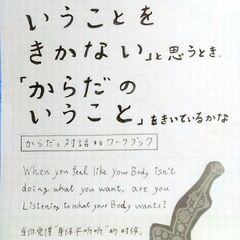 いうことを
きかない」と思うとき、
「からだの
いうこと」をきいているかな
からだと対話するワークブック
When you feel like your Body isn't
doing what you want, are you
Listening to what your Body wants?
当你觉得"身体不听话"的时候,